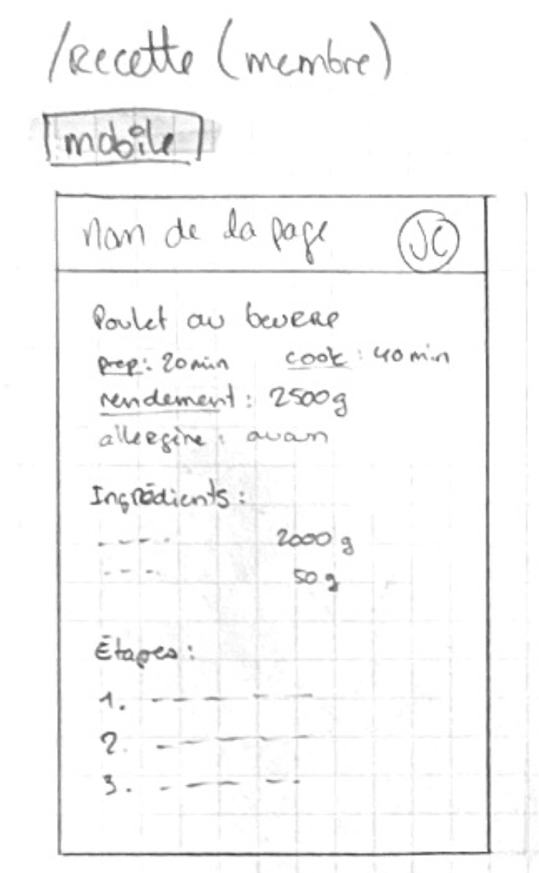 /Recette (membre)
mobile
Nom de la page JC
Poulet au beurre
prep: 20 min cook: 40 min
rendement: 2500g
allergène: aucun
Ingrédients:
2000 g
50 g
Étapes:
1.
2.
3.